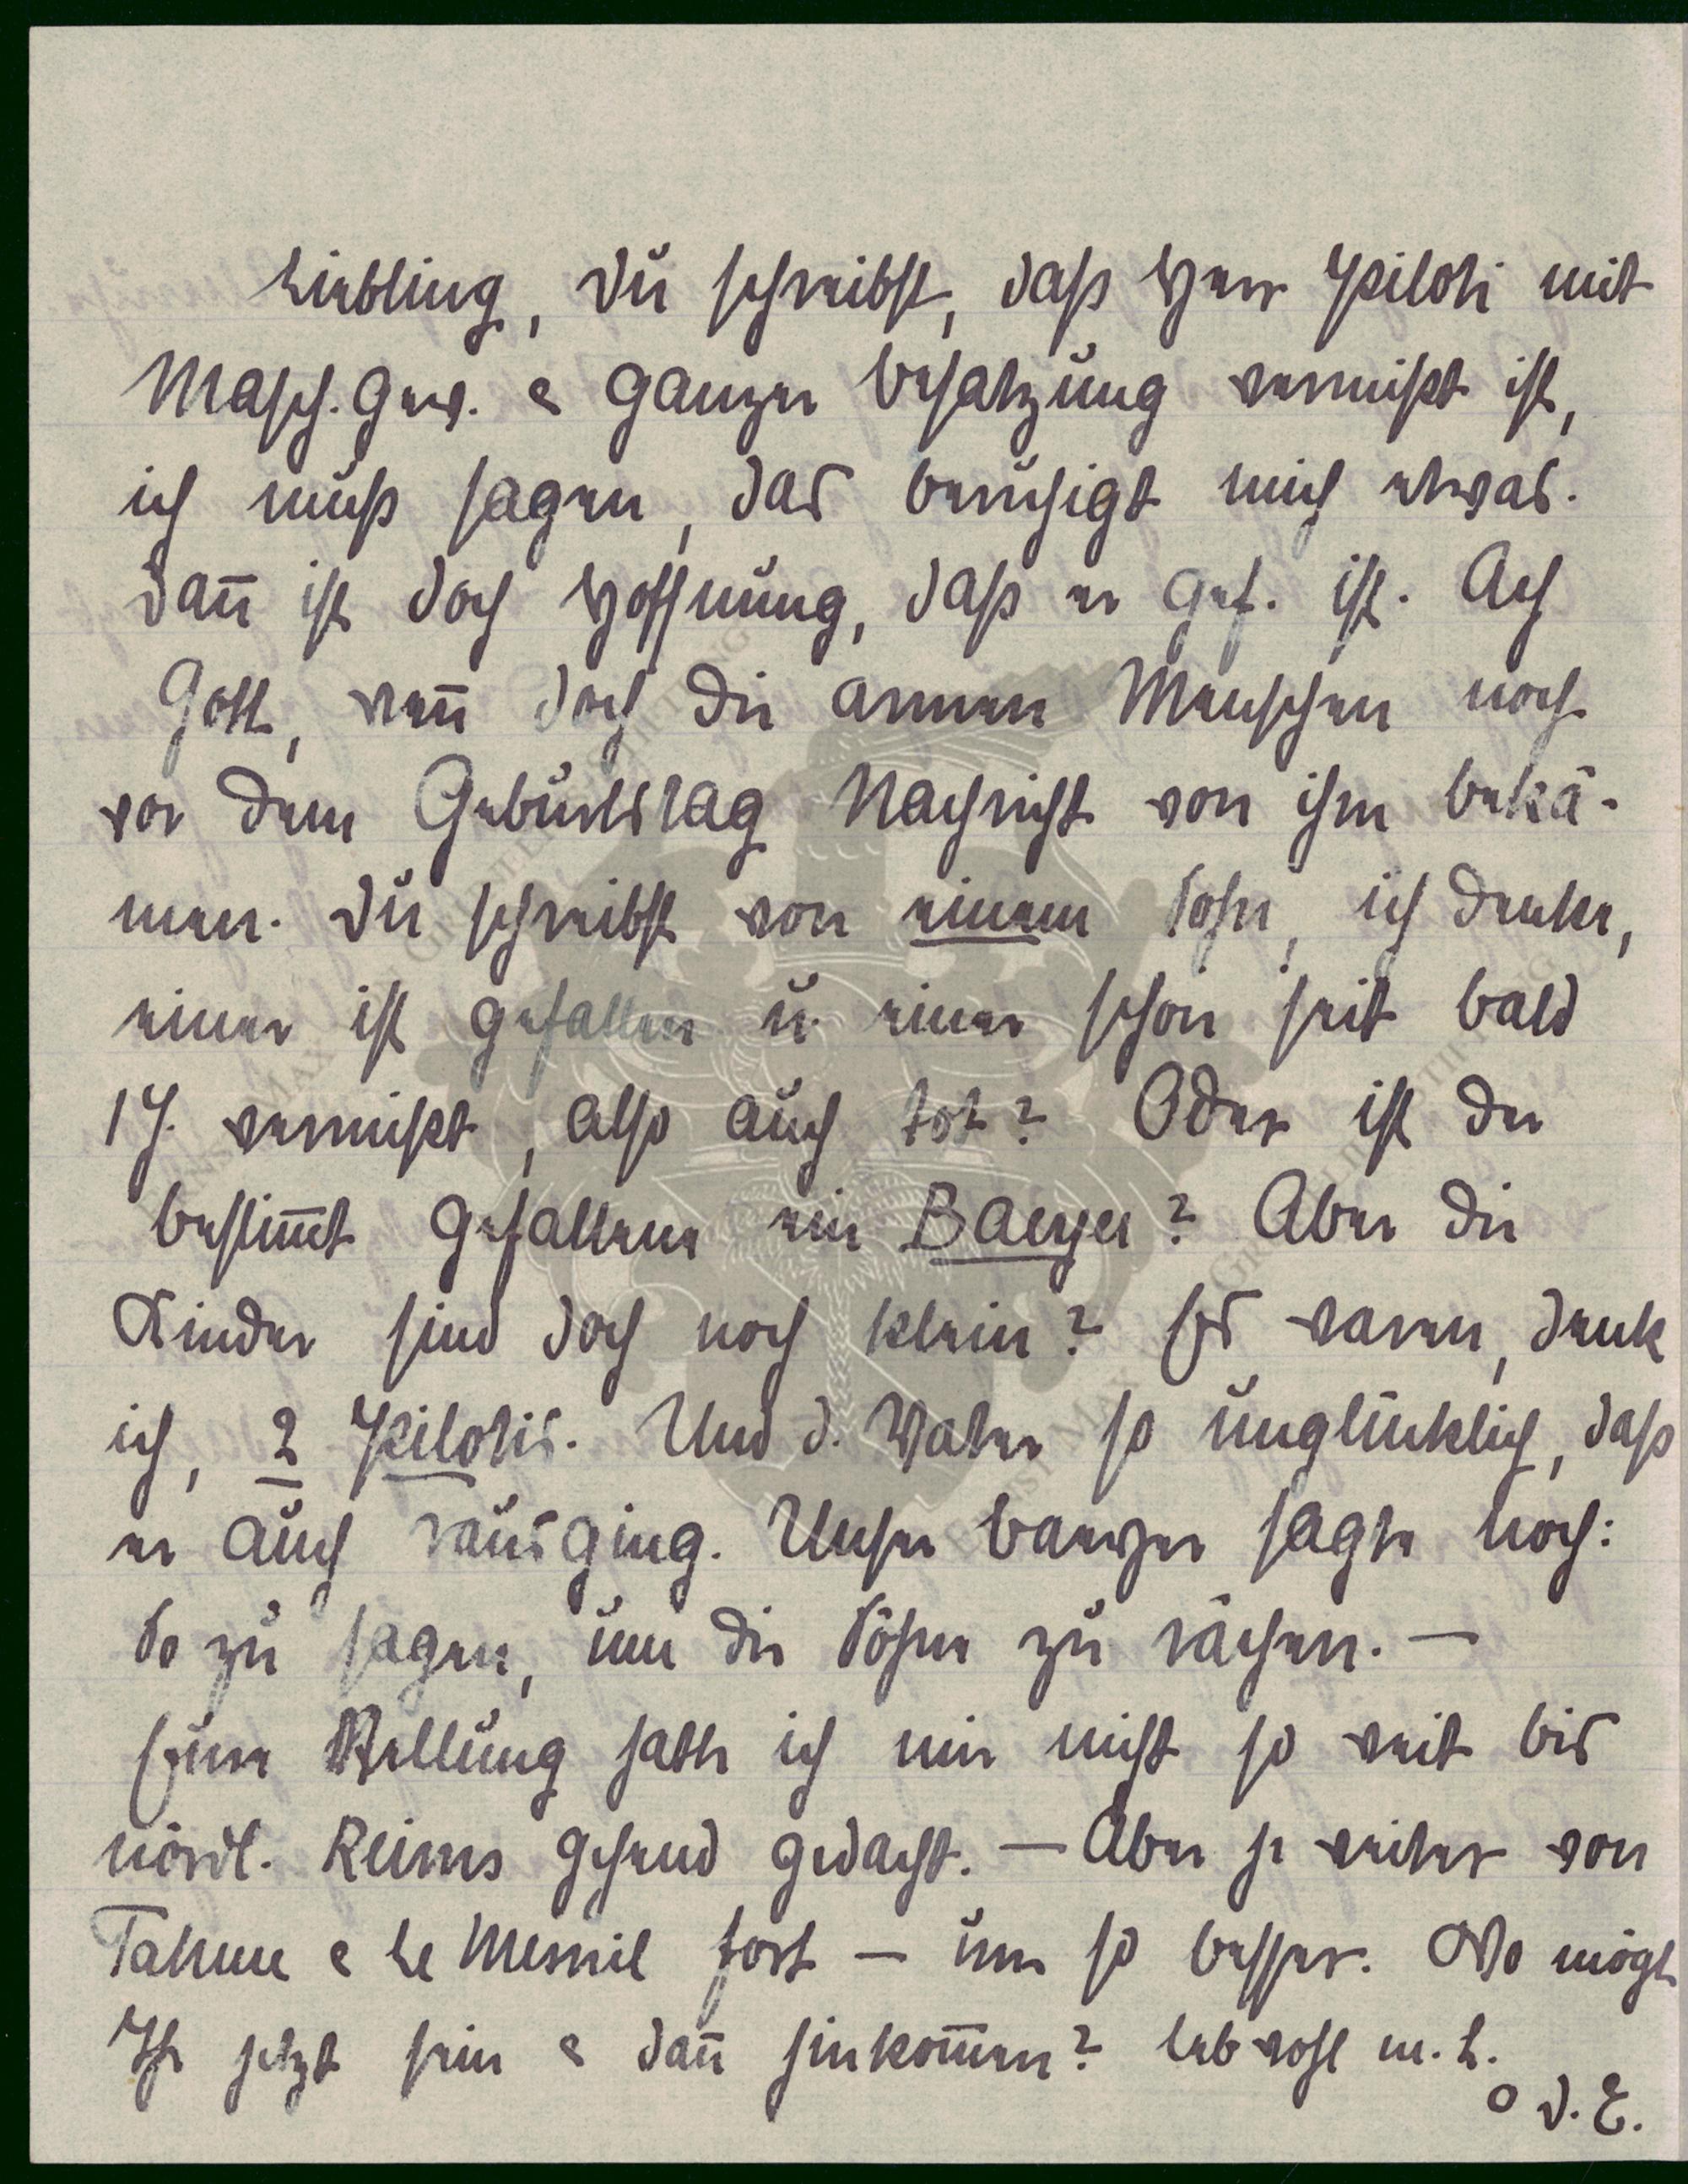 Liebling, Du schreibst, daß Herr Piloti mit
Masch. Gew. & ganzer Besatzung vermißt ist,
ich muß sagen, das beruhigt mich etwas.
Dan̄ ist doch Hoffnung, daß er gef. ist. Ach
Gott, wen̄ doch die armen Menschen noch
vor dem Geburtstag Nachricht von ihm bekä-
men. Du schreibst von einem Sohn, ich denke,
einer ist gefallen u. einer schon seit bald
1 J. vermißt, also auch tot? Oder ist der
bestim̄t Gefallene ein Baeyer? Aber die
Kinder sind doch noch klein? Es waren, denk
ich, 2 Pilotis. Und d. Vater so unglücklich, daß
er auch rausging. Unser Baeyer sagte noch:
So zu sagen, um die Söhne zu rächen. —
Eure Stellung hatte ich mir nicht so weit bis
nördl. Reims gehend gedacht. — Aber je weiter von
Tahure & Le Mesnil fort — um so besser. Wo mögt
Ihr jetzt sein & dan̄ hinkom̄en? Leb wohl m. L.
o D. E.